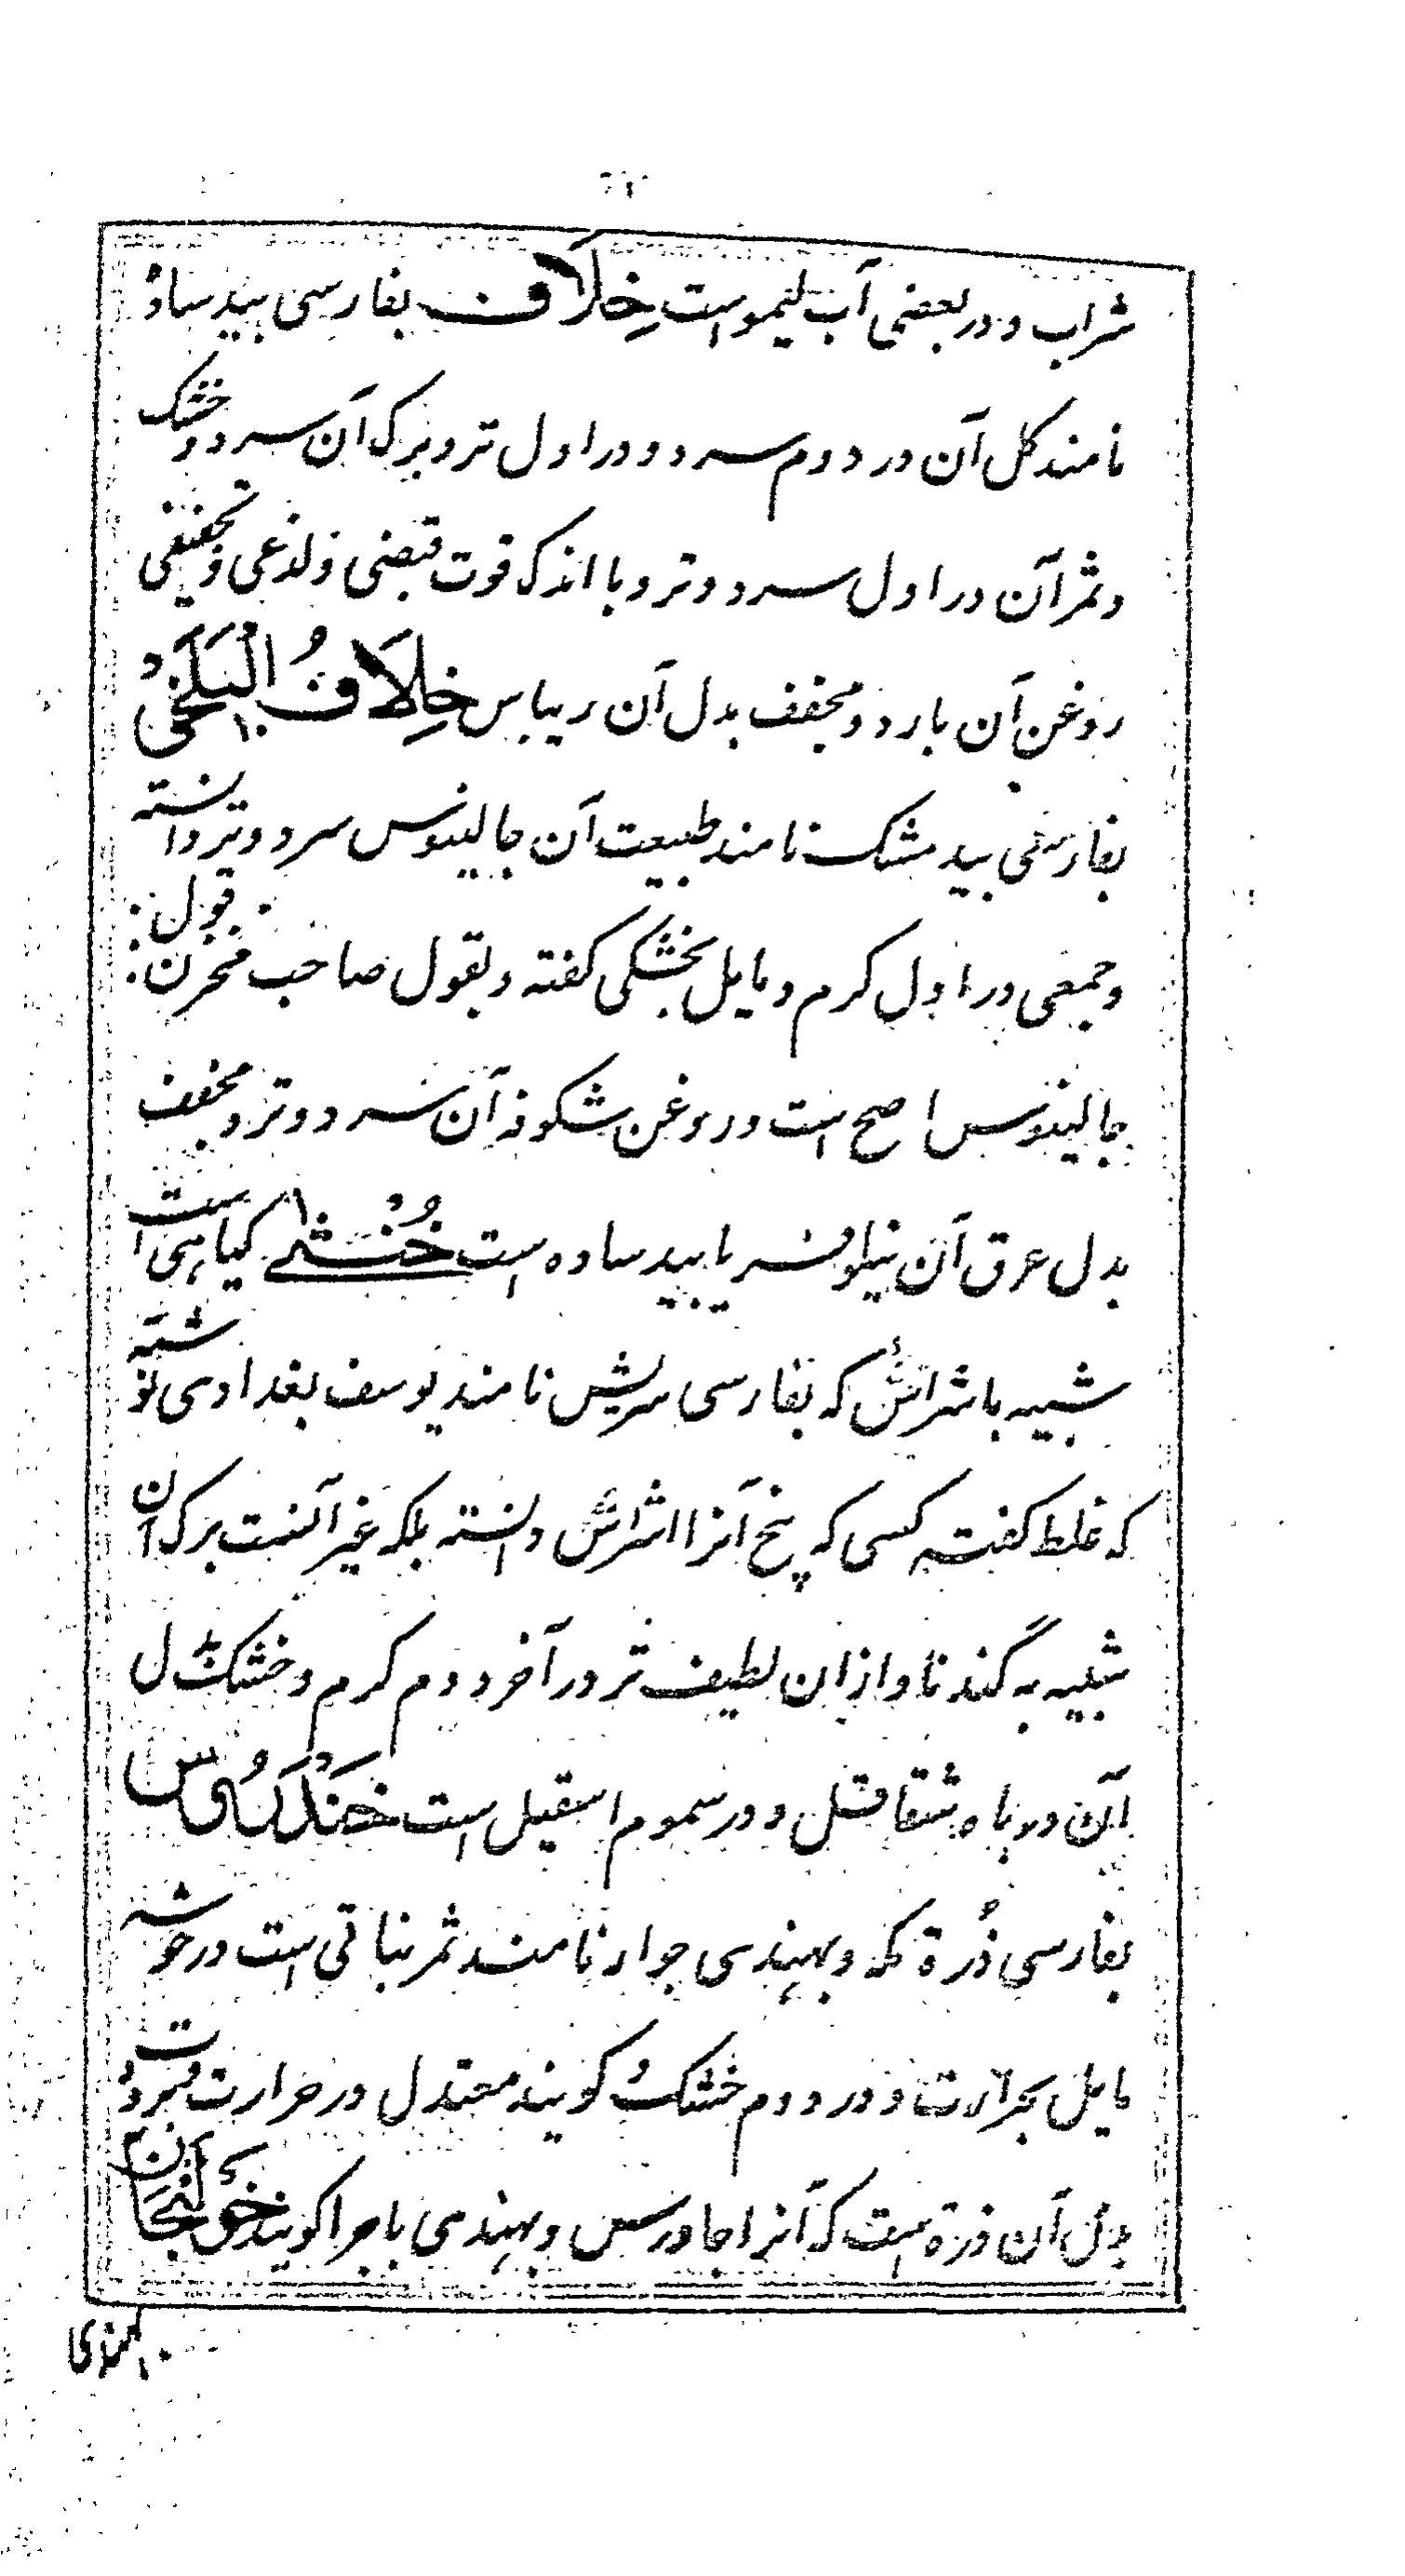 شراب و در بعضی آب لیمو است خِلَاف بفارسی بید سادَه
نامند کل آن در دوم سرد و در اول تر و برک آن سرد و خشک
و ثمر آن در اول سرد و تر و با اندک قوت قبضی و لذعی و تجفیفی
روغن آن بارد و مجفف بدل آن ریباس خِلَافُ الْبَلَخِی
بفارسی بید مشک نامند طبیعت آن جالینوس سرد و تر دانسته
و جمعی در اول کرم و مایل بخشکی کفته و بقول صاحب مخزن قول
جالینوس اصح است و روغن شکوفه آن سرد و تر و مجفف
بدل عرق آن نیلوفر یا بید ساده است خُنْثٰے کیاهی است
شبیه باشراش که بفارسی سریش نامند یوسف بغدادی نوشته
که غلط کفته کسی که بیخ آنرا اشراش دانسته بلکه غیر آنست برک آن
شبیه به گندنا و ازان لطیف تر در آخر دوم کرم و خشک بدل
آن در باه شقاقل و در سموم اسقیل است خَنْدَرُوس
بفارسی ذُرة مکه و بهندی جوار نامند ثمر نباتی است در خوشه
مایل بحرارت و در دوم خشک و کویند معتدل در حرارت و برودت
بدل آن ذرة است که آنرا جاورس و بهندی باجرا کویند خَوْلَنْجَان